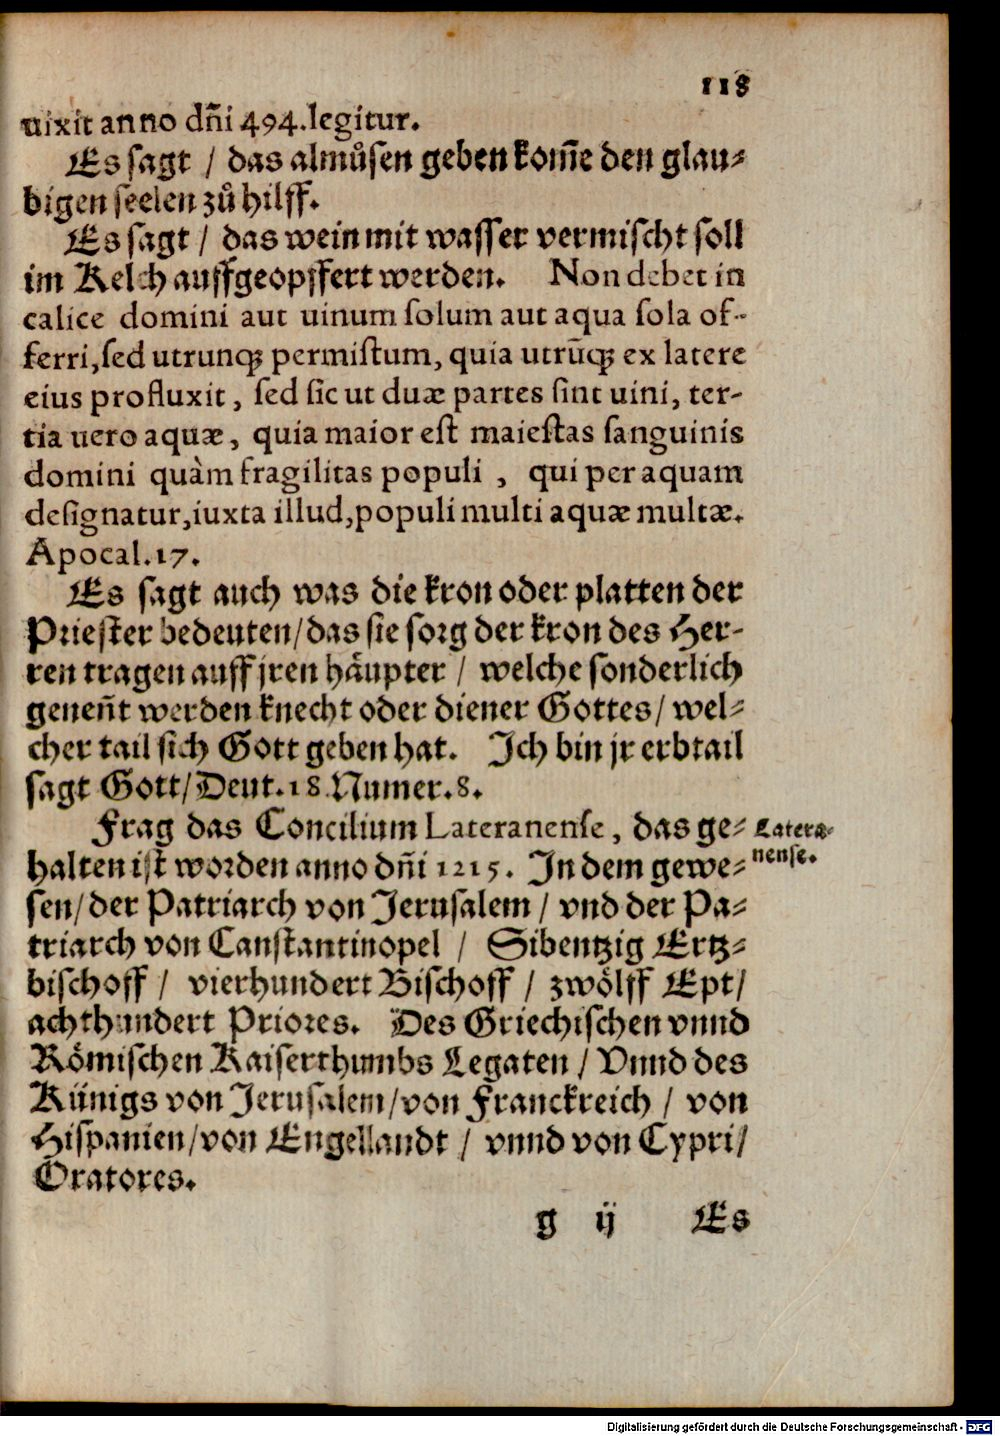 118
uixit anno dñi 494.legitur.
Es sagt / das almůsen geben kom̃e den glau⸗
bigen seelen zů hilff.
Es sagt / das wein mit wasser vermischt soll
im Kelch auffgeopffert werden. Non debet in
calice domini aut uinum solum aut aqua sola of-
ferri,sed utrunq; permistum, quia utrūq; ex latere
eius profluxit, sed sic ut duæ partes sint uini, ter-
tia uero aquæ, quia maior est maiestas sanguinis
domini quàm fragilitas populi , qui per aquam
designatur,iuxta illud,populi multi aquæ multæ.
Apocal.17.
Es sagt auch was die kron oder platten der
Priester bedeuten/das sie sorg der kron des Her-
ren tragen auff jren häupter / welche sonderlich
geneñt werden knecht oder diener Gottes/ wel⸗
cher tail sich Gott geben hat. Ich bin jr erbtail
sagt Gott/Deut.18.Numer.8.
Frag das Concilium Lateranense, das ge⸗
Latera⸗
halten ist worden anno dñi 1215. In dem gewe⸗
nense.
sen/der Patriarch von Jerusalem / vnd der Pa⸗
triarch von Canstantinopel / Sibentzig Ertz⸗
bischoff / vierhundert Bischoff / zwölff Ept/
achthundert Priores. Des Griechischen vnnd
Römischen Kaiserthumbs Legaten / Vnnd des
Künigs von Jerusalem/von Franckreich / von
Hispanien/von Engellandt / vnnd von Cypri/
Oratores.
g ij Es
Digitalisierung gefördert durch die Deutsche Forschungsgemeinschaft - DFG